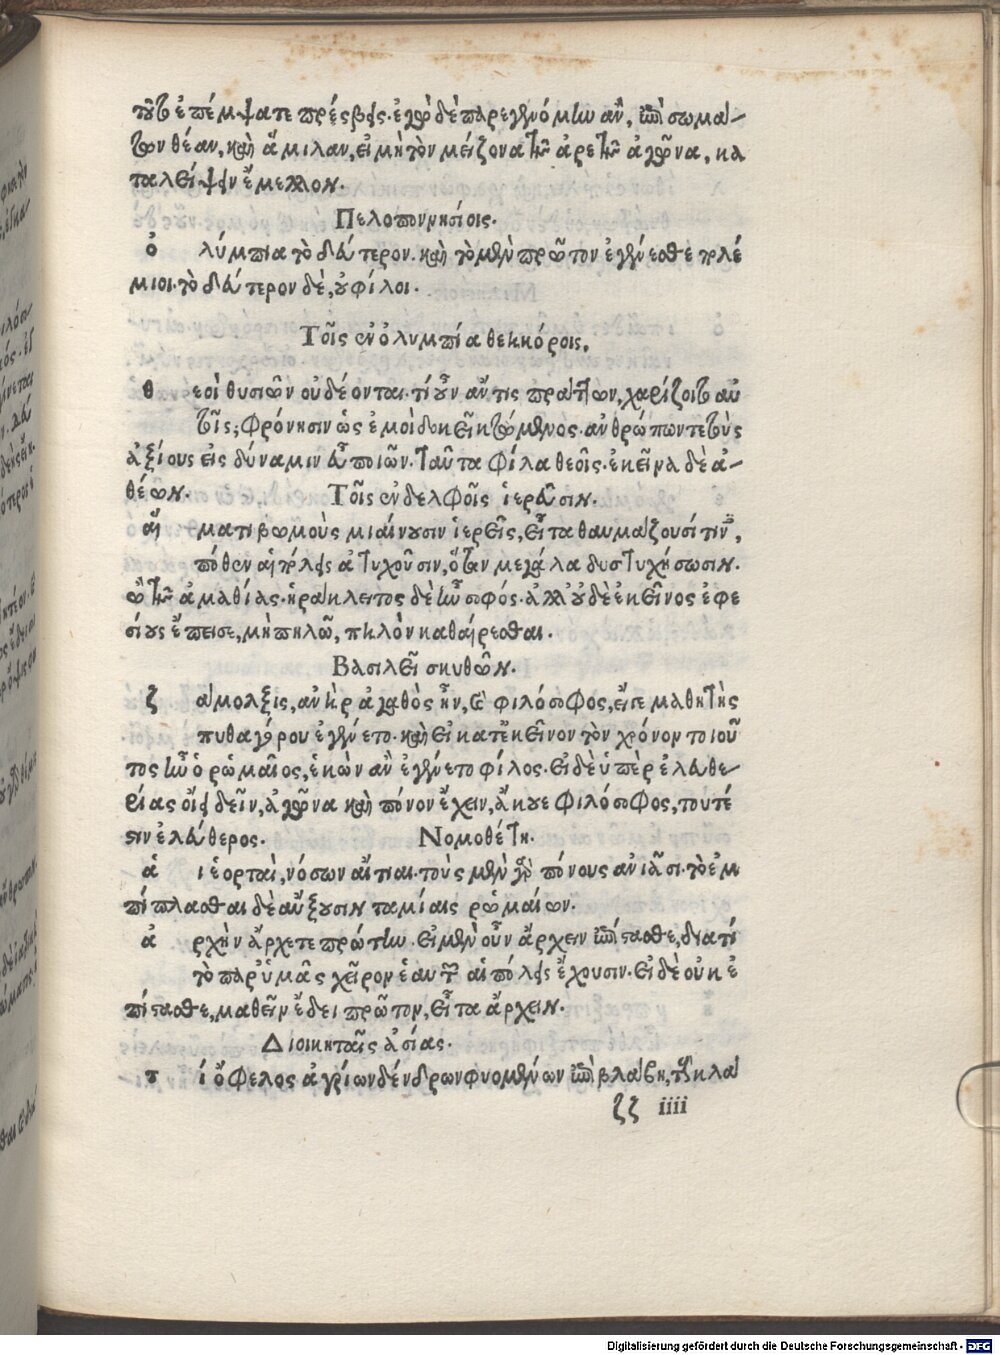 τοῦτο ἐπέμψατε πρέσβεις. ἐγὼ δὲ παρεγενόμην ἂν, ἐπὶ σωμά-
των θέαν, καὶ ἅμιλαν, εἰ μὴ τὸν μείζονα τῶν ἀρετῶν ἀγῶνα, κα
ταλείψειν ἔμελλον.
Πελοποννησίοις.
ὀ λύμπια τὸ δεύτερον. καὶ τὸ μὲν πρῶτον ἐγένεσθε πολέ
μιοι. τὸ δεύτερον δὲ, οὐ φίλοι.
Τοῖς ἐν ὀλυμπίᾳ θεηκόροις.
θ εοὶ θυσιῶν οὐ δέονται. τί οὖν ἄν τις πράττων, χαρίζοιτο αὐ
τοῖς; φρόνησιν ὡς ἐμοὶ δοκεῖ κτώμενος. ἀνθρώπων τε τοὺς
ἀξίους εἰς δύναμιν εὖ ποιῶν. ταῦτα φίλα θεοῖς. ἐκεῖνα δὲ ἀ-
θέων. Τοῖς ἐν δελφοῖς ἱερεῦσιν.
αἵ ματι βωμοὺς μιαίνουσιν ἱερεῖς, εἶτα θαυμάζουσί τινες,
πόθεν αἱ πόλεις ἀτυχοῦσιν, ὅταν μεγάλα δυστυχήσωσιν.
ὢ τῆς ἀμαθίας. ἡράκλειτος δὲ ἦν σοφός. ἀλλ' οὐδὲ ἐκεῖνος ἐφε
σίους ἔπεισε, μὴ πηλῷ, πηλὸν καθαίρεσθαι.
Βασιλεῖ σκυθῶν.
ζ άμολξις, ἀνὴρ ἀγαθὸς ἦν, καὶ φιλόσοφος, εἴγε μαθητὴς
πυθαγόρου ἐγένετο. καὶ εἰ κατ' ἐκεῖνον τὸν χρόνον τοιοῦ
τος ἦν ὁ ῥωμαῖος, ἑκὼν ἂν ἐγένετο φίλος. εἰ δὲ ὑπὲρ ἐλευθε-
ρίας οἴει δεῖν, ἀγῶνα καὶ πόνον ἔχειν, ἄκουε φιλόσοφος, τουτέ
στιν ἐλεύθερος. Νομοθέτῃ.
ἁ ι ἑορταὶ, νόσων αἴτιαι. τοὺς μὲν γὰρ πόνους ἀνιᾶσι. τὸ ἐμ
πίπλασθαι δὲ αὔξουσιν ταμίαις ῥωμαίων.
ἀ ρχὴν ἄρχετε πρώτην. εἰ μὲν οὖν ἄρχειν ἐπίστασθε, διατί
τὸ παρ' ὑμᾶς χεῖρον ἑαυτῶν αἱ πόλεις ἔχουσιν. εἰ δὲ οὐκ ἐ
πίστασθε, μαθεῖν ἔδει πρῶτον, εἶτα ἄρχειν.
Διοικηταῖς ἀσίας.
τ ί ὄφελος ἀγρίων δένδρων φυομένων ἐπὶ βλάβῃ, τὰ κλα
ζζ iiii
Digitalisierung gefördert durch die Deutsche Forschungsgemeinschaft - DFG